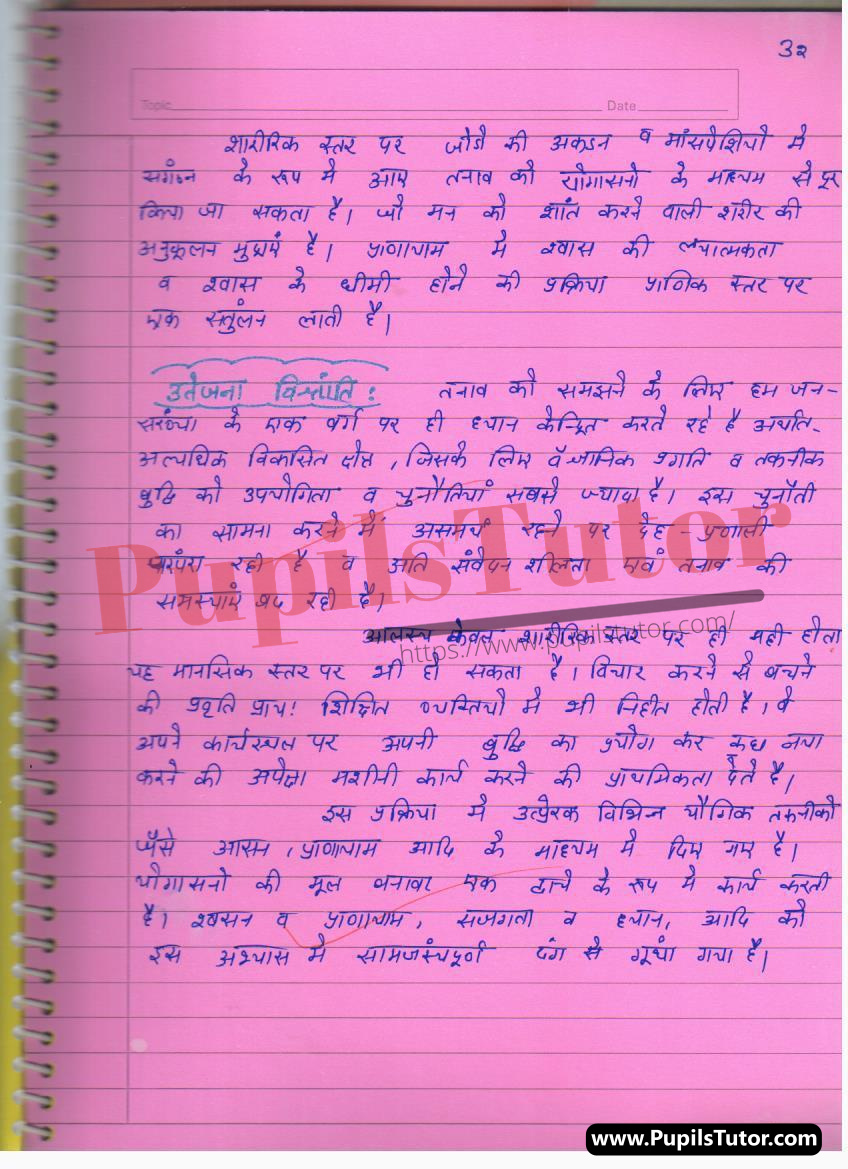 ३२
Topic Date
शारीरिक स्तर पर जोडो की अकडन व मांसपेशियो मे
संगठन के रूप मे आए तनाव को योगासनो के माध्यम से दूर
किया जा सकता है। जो मन को शांत करने वाली शरीर की
अनुकूलन मुद्राएं है। प्राणायाम मे श्वास की लयात्मकता
व श्वास के धीमी होने की प्रक्रिया प्राणिक स्तर पर
एक सतुंलन लाती है।
उतेजना विश्रांति : तनाव को समझने के लिए हम जन-
संख्या के एक वर्ग पर ही ध्यान केन्द्रित करते रहे है अर्थात-
अत्यधिक विकसित क्षेत्र , जिसके लिए वैज्ञानिक प्रगति व तकनीक
बुद्धि की उपयोगिता व चुनौतियां सबसे ज्यादा है। इस चुनौती
का सामना करने में असमर्थ रहने पर देह - प्रणाली
रही है व अति संवेदनशीलता एवं तनाव की
समस्याएं बढ रही है।
आलस्य केवल शारीरिक स्तर पर ही नही होता
यह मानसिक स्तर पर भी हो सकता है। विचार करने से बचने
की प्रवृति प्राय! शिक्षित व्यक्तियो मे भी निहीत होती है। वे
अपने कार्यस्थल पर अपनी बुद्धि का प्रयोग कर कुछ नया
करने की अपेक्षा मशीनी कार्य करने की प्राथमिकता देते है।
इस प्रक्रिया मे उत्प्रेरक विभिन्न यौगिक तकनीको
जैसे आसन , प्राणायाम आदि के माध्यम मे दिए गए है।
योगासनो की मूल बनावट एक ढाचे के रूप मे कार्य करती
है। श्वसन व प्राणायाम, सजगता व ध्यान, आदि को
इस अभ्यास मे सामजंस्यपूर्ण ढंग से गूथा गया है।
PupilsTutor
https://www.pupilstutor.com/
www.PupilsTutor.com